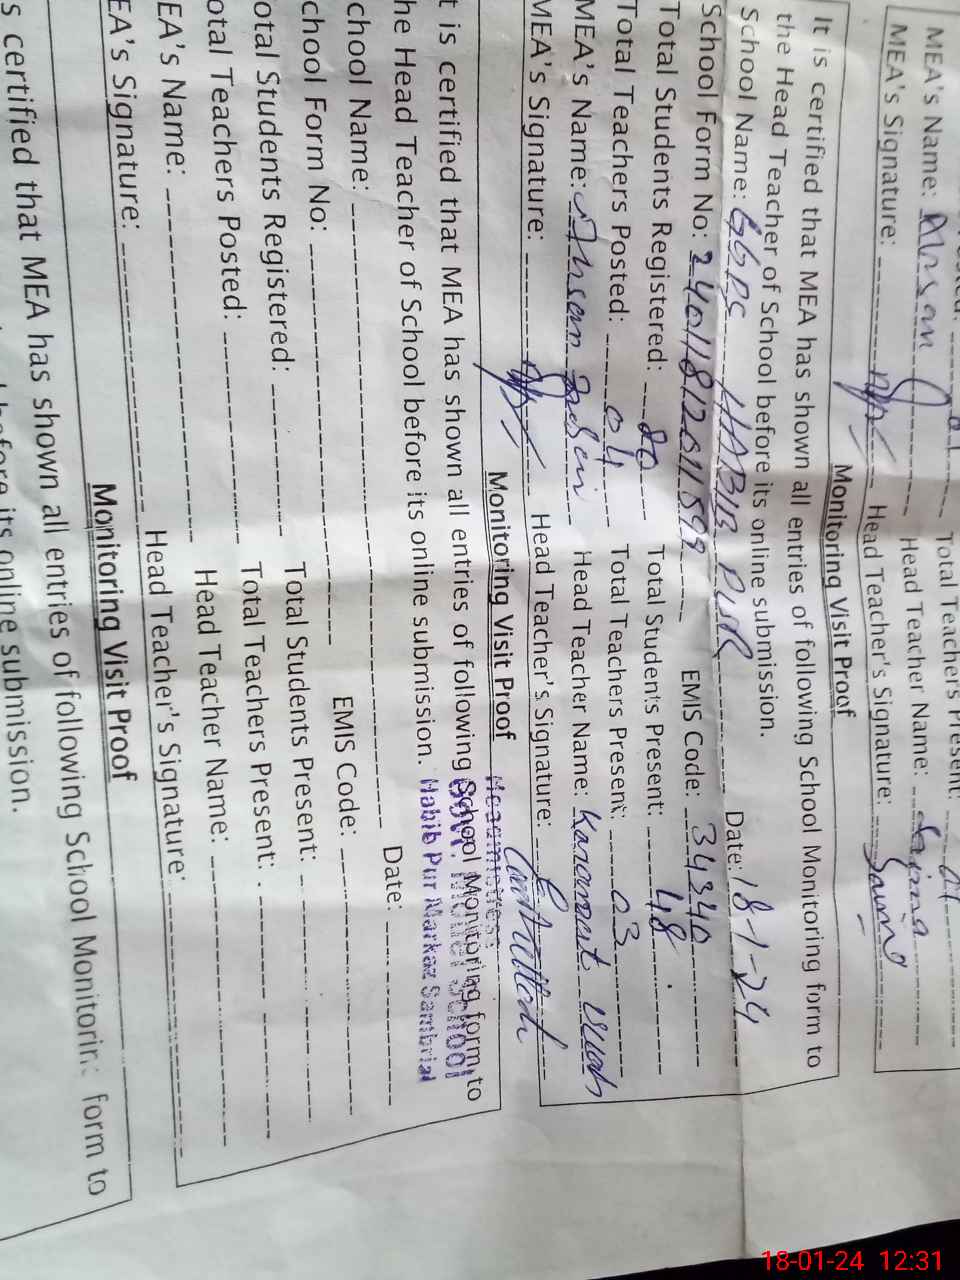 Total Teachers Present: 01
MEA's Name: Ahsan Head Teacher Name: Saima
MEA's Signature: Head Teacher's Signature: Saima
Monitoring Visit Proof
It is certified that MEA has shown all entries of following School Monitoring form to
the Head Teacher of School before its online submission.
School Name: GGPS HABIB PUR Date: 18-1-24
School Form No: 24011812611599 EMIS Code: 34340
Total Students Registered: 80 Total Students Present: 48
Total Teachers Posted: 04 Total Teachers Present: 03
MEA's Name: Ahsan Head Teacher Name: Karamat ullah
MEA's Signature: Head Teacher's Signature:
Monitoring Visit Proof
Headmistress
t is certified that MEA has shown all entries of following School Monitoring form to
Govt. Model School
he Head Teacher of School before its online submission.
Habib Pur Markaz Sambrial
chool Name: Date:
chool Form No: EMIS Code:
otal Students Registered: Total Students Present:
otal Teachers Posted: Total Teachers Present:
EA's Name: Head Teacher Name:
EA's Signature: Head Teacher's Signature:
Monitoring Visit Proof
s certified that MEA has shown all entries of following School Monitoring form to
before its online submission.
18-01-24 12:31